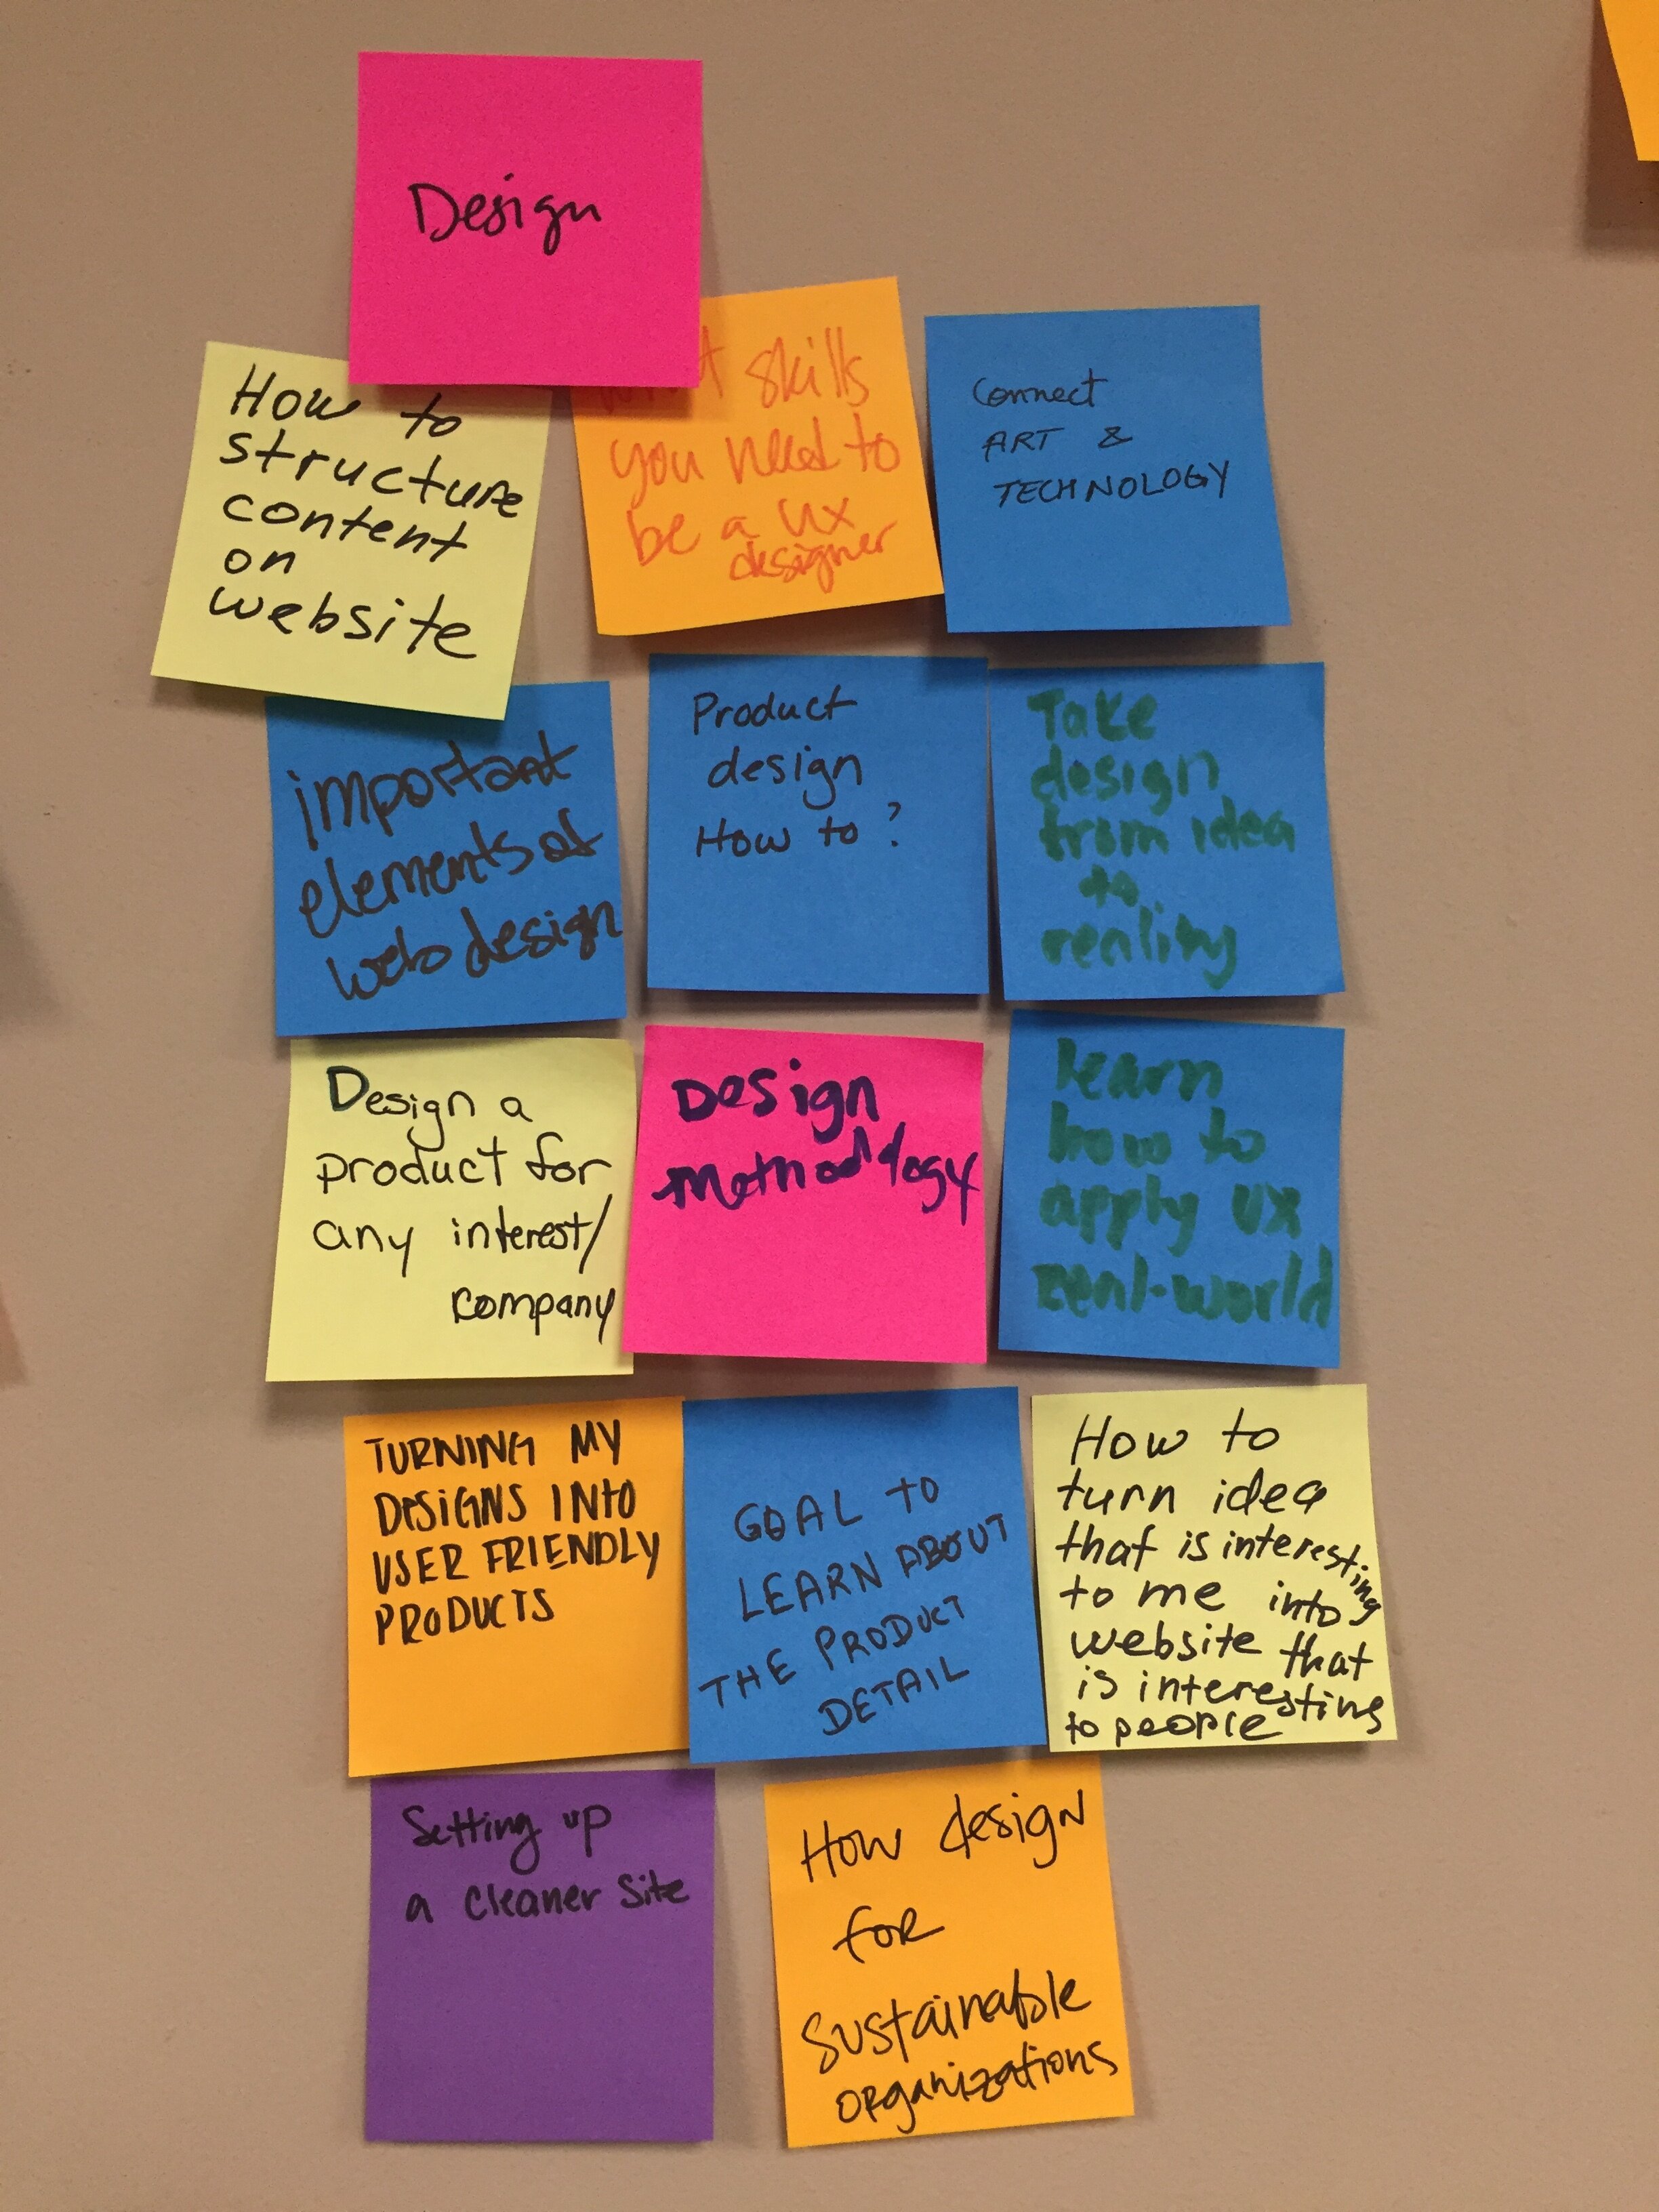 Design
How to
structure
content
on
website
skills
you need to
be a UX
designer
Connect
ART &
TECHNOLOGY
important
elements of
web design
Product
design
How to ?
Take
design
from idea
to
reality
Design a
product for
any interest/
company
Design
Methodology
learn
how to
apply UX
real-world
TURNING MY
DESIGNS INTO
USER FRIENDLY
PRODUCTS
GOAL TO
LEARN ABOUT
THE PRODUCT
DETAIL
How to
turn idea
that is interesting
to me into
website that
is interesting
to people
Setting up
a cleaner site
How design
for
sustainable
organizations